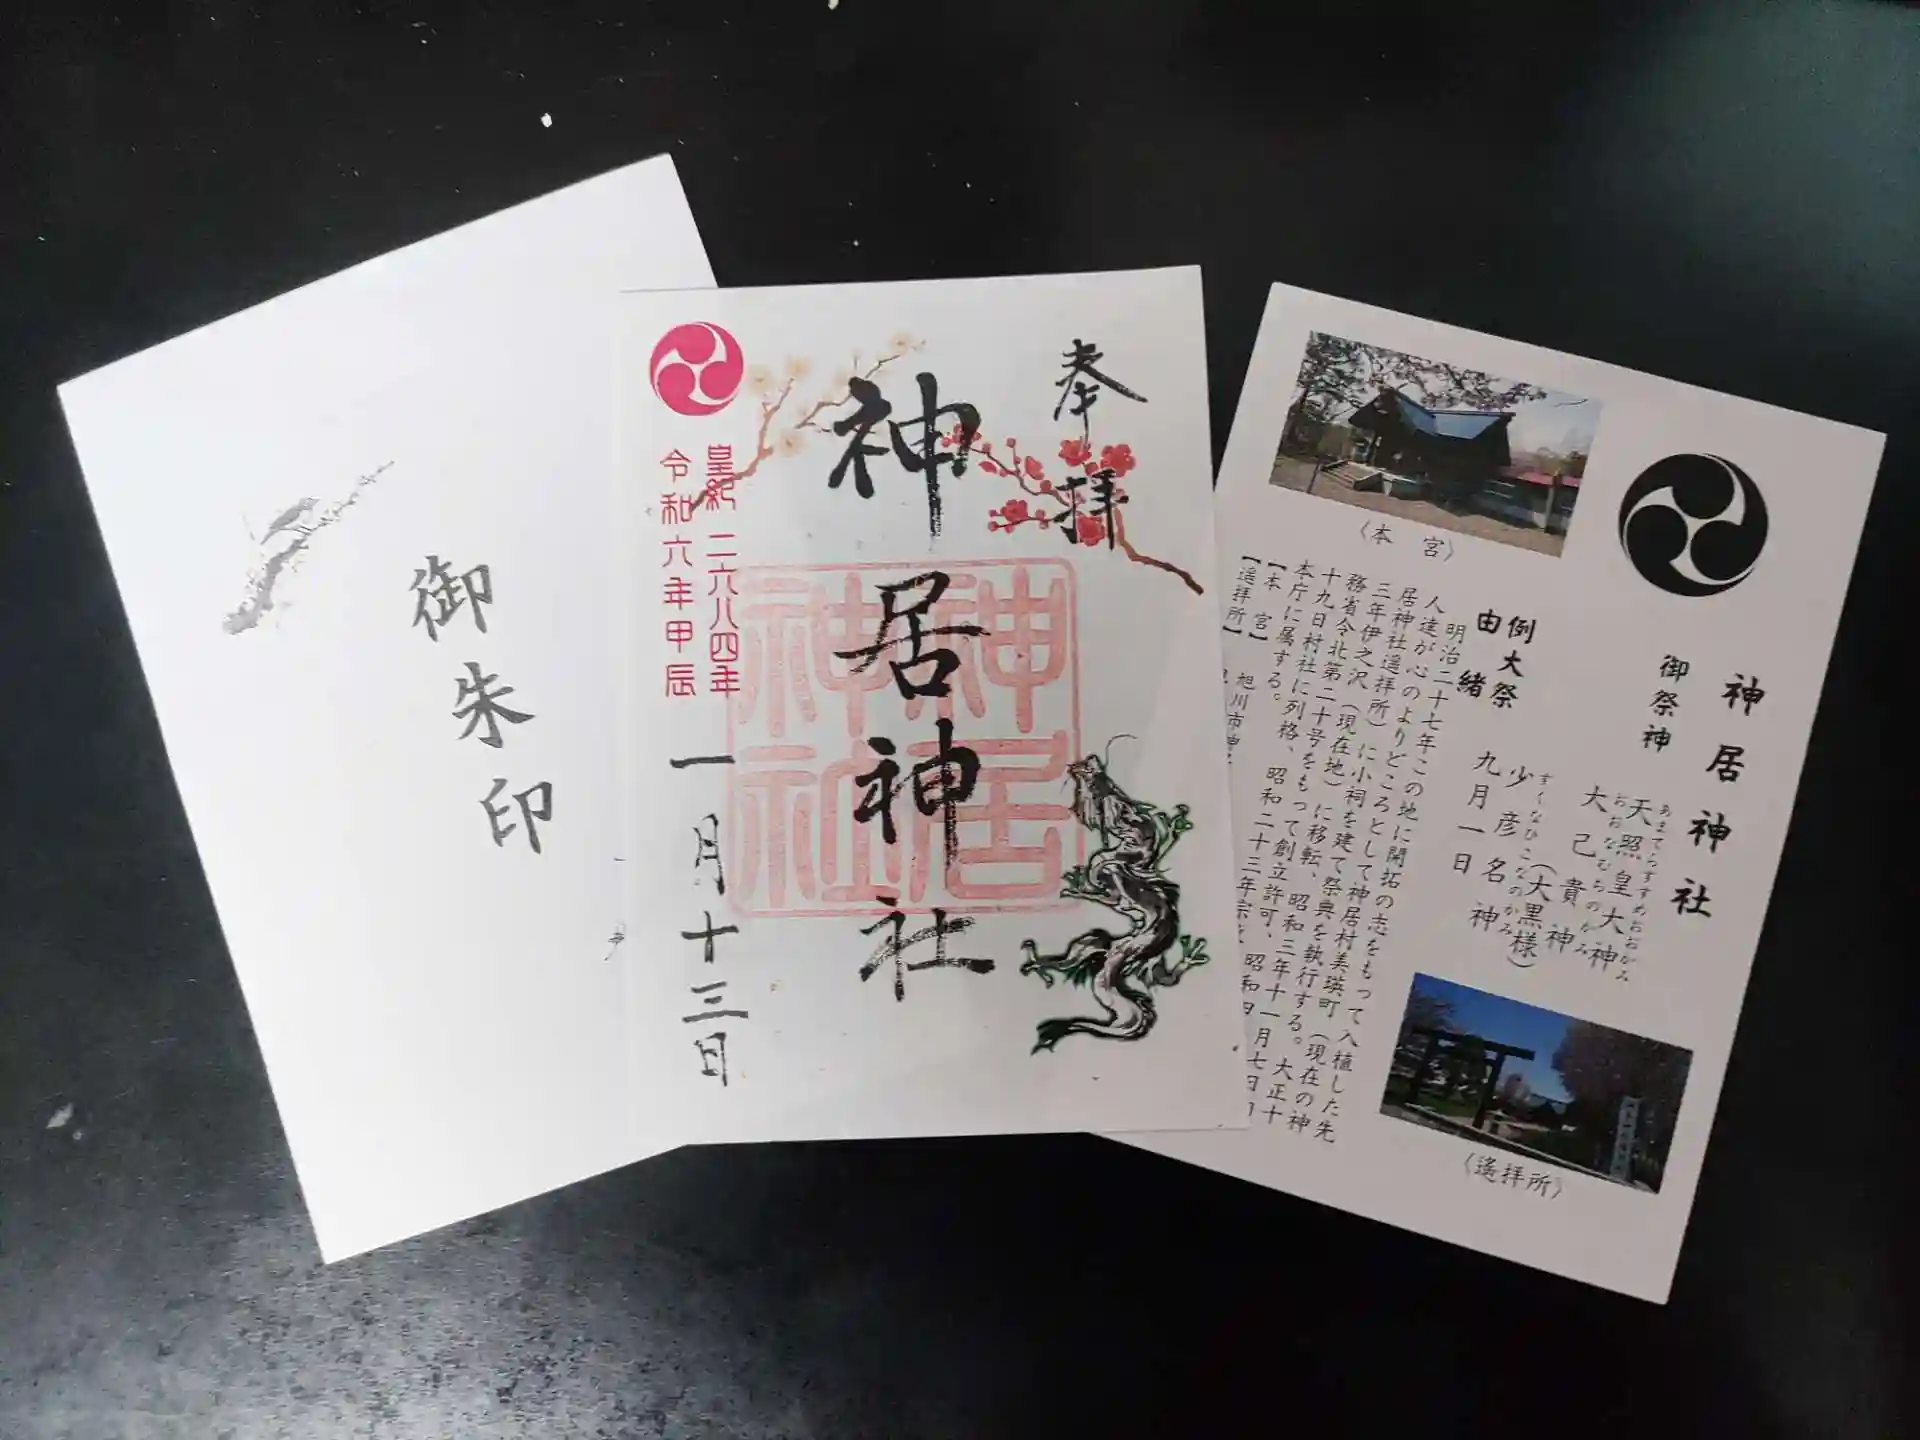 御朱印
奉拝
神居神社
皇紀二六八四年
令和六年甲辰
一月十三日
神居神社
神居神社
御祭神
天照皇大神
あまてらすすめおおかみ
大己貴神
おおなむちのかみ
（大黒様）
少彦名神
すくなひこなのかみ
例大祭 九月一日
由緒
明治二十七年この地に開拓の志をもって入植した先
人達が心のよりどころとして神居村美瑛町（現在の神
居神社遥拝所）に小祠を建て祭典を執行する。大正十
三年伊之沢（現在地）に移転、昭和三年十一月七日
務省令北第二十号をもって創立許可、昭和
十九日村社に列格、昭和二十三年宗
本庁に属する。
【本 宮】旭川市神
【遥拝所】
〈本 宮〉
〈遙拝所〉